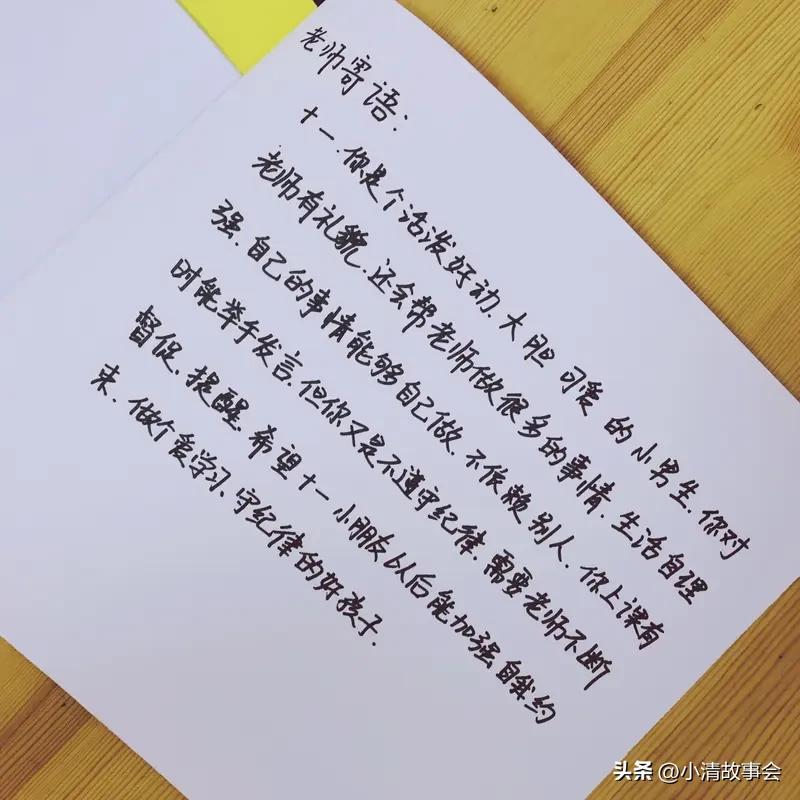 老师寄语：
十一、你是个活泼好动、大胆可爱的小男生、你对
老师有礼貌、还会帮老师做很多的事情、生活自理
强、自己的事情能够自己做、不依赖别人、你上课有
时能举手发言、但你又是不遵守纪律、需要老师不断
督促、提醒、希望十一小朋友以后能加强自我约
束、做个爱学习、守纪律的好孩子.
头条 @小清故事会